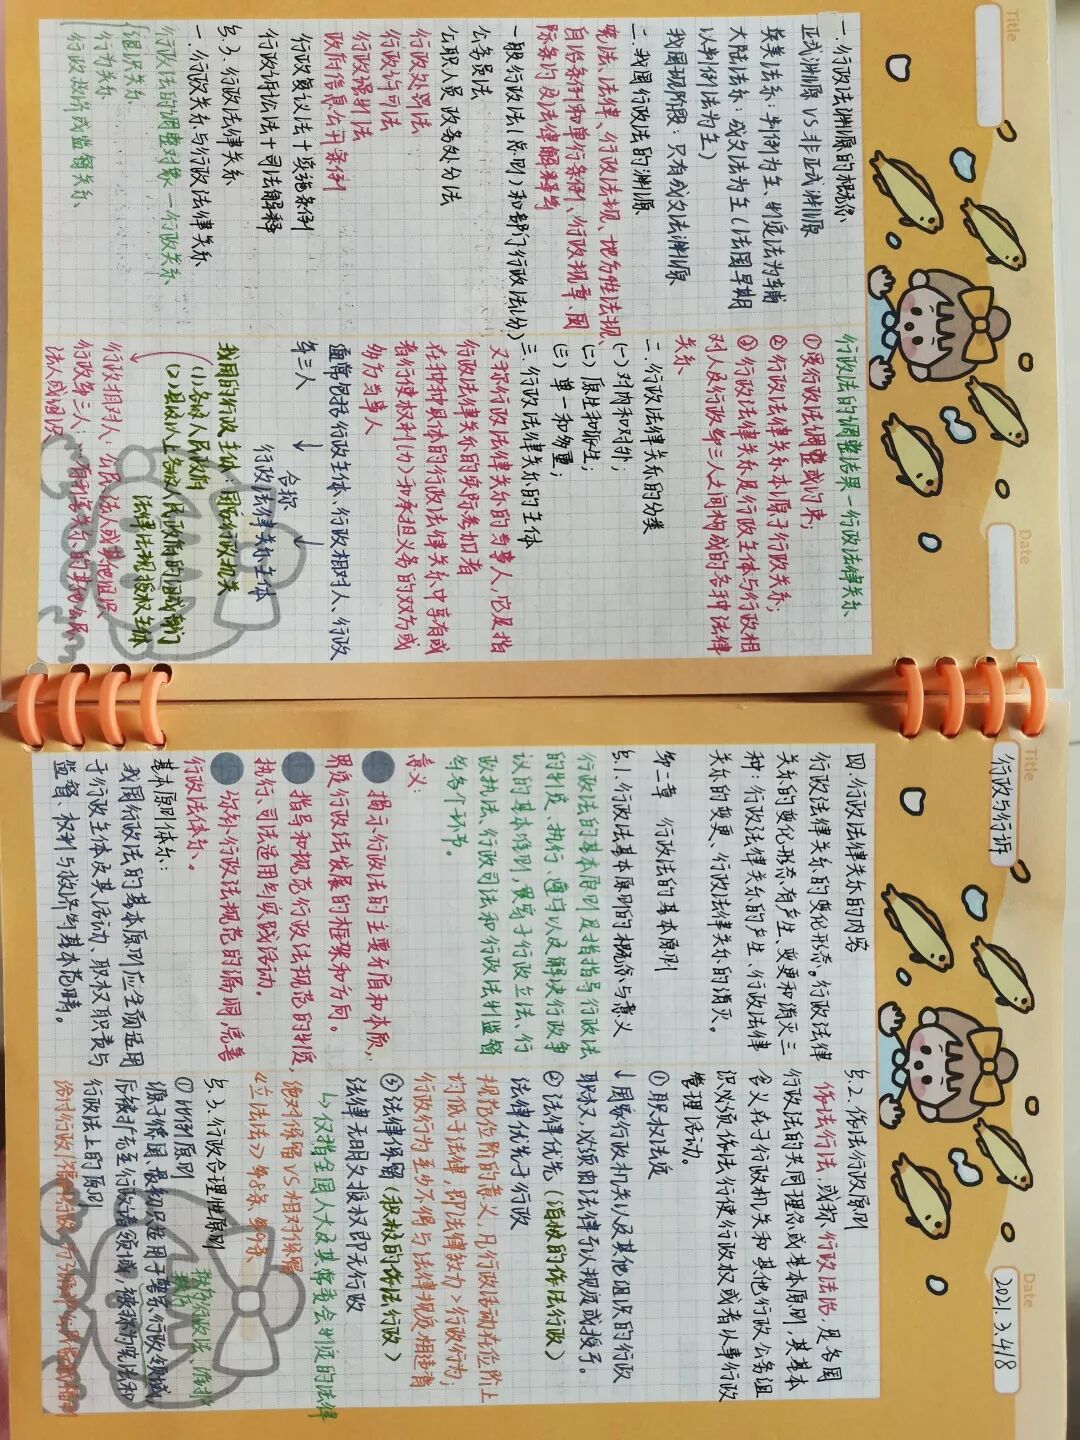 Title
Date
一.行政法渊源的概念
正式渊源 VS 非正式渊源
英美法系：判例为主、制定法为辅
大陆法系：成文法为主（法国早期
以判例法为主）
我国现阶段：只有成文法渊源
二.我国行政法的渊源
宪法、法律、行政法规、地方性法规、
自治条例和单行条例、行政规章、国
际条约及法律解释等
一般行政法(总则)和部门行政法(分)
公务员法
公职人员政务处分法
行政处罚法
行政许可法
行政强制法
政府信息公开条例
行政复议法+实施条例
行政诉讼法+司法解释
§.3.行政法律关系
一.行政关系与行政法律关系
行政法的调整对象—行政关系
组织关系
行为关系
行政救济或监督关系
行政法的调整结果—行政法律关系
①受行政法调整或约束;
②行政法律关系本源于行政关系;
③行政法律关系是行政主体与行政相
对人及行政第三人之间构成的各种法律
关系
二.行政法律关系的分类
(一)对内和对外;
(二)原生和派生;
(三)单一和多重;
三.行政法律关系的主体
又称行政法律关系的当事人,它是指
行政法律关系的实际参加者
在种种具体的行政法律关系中享有或
者行使权利(力)和承担义务的双方或
多方当事人
通常包括行政主体、行政相对人、行政
第三人
合称
行政法律关系主体
我国的行政主体：国家行政机关
(1)各级人民政府
(2)县级以上各级人民政府的组成部门
法律法规授权主体
行政相对人：公民、法人或其他组织
行政第三人：有利害关系的其他公民、
法人或组织
Title
行政与行诉
Date
2021.3.4/8
四.行政法律关系的内容
行政法律关系的变化形态。行政法律
关系的变化形态有产生、变更和消灭三
种：行政法律关系的产生、行政法律
关系的变更、行政法律关系的消灭。
第二章 行政法的基本原则
§.1.行政法基本原则的概念与意义
行政法的基本原则是指指导行政法
的制定、执行、遵守以及解决行政争
议的基本准则,贯穿于行政立法、行
政执法、行政司法和行政法制监督
等各个环节。
意义：
揭示行政法的主要矛盾和本质,
界定行政法发展的框架和方向。
指导和规范行政法规范的制定,
执行、司法适用等实践活动。
弥补行政法规范的漏洞,完善
行政法体系。
基本原则体系：
我国行政法的基本原则应全面适用
于行政主体及其活动、职权职责与
监督、权利与救济等基本范畴。
§.2.依法行政原则
依法行政,或称,行政法治,是各国
行政法的共同理念或基本原则,其基本
含义在于行政机关和其他行政公务组
织必须依法行使行政权或者从事行政
管理活动。
①职权法定
↓国家行政机关以及其他组织的行政
职权,必须由法律予以规定或授予。
②法律优先(消极的依法行政)
法律优先于行政
规范位阶的意义,凡行政活动在位阶上
均低于法律,即法律效力>行政行为;
行政行为至少不得与法律规范相违背
③法律保留(积极的依法行政)
法律无明文授权即无行政
↳仅指全国人大及其常委会制定的法律
绝对保留 VS 相对保留
《立法法》第8条、第9条
§.3.行政合理性原则
①比例原则
源于德国、最初只适用于警察行政领域,
后被扩充至行政诸领域,被称为宪法和
行政法上的原则